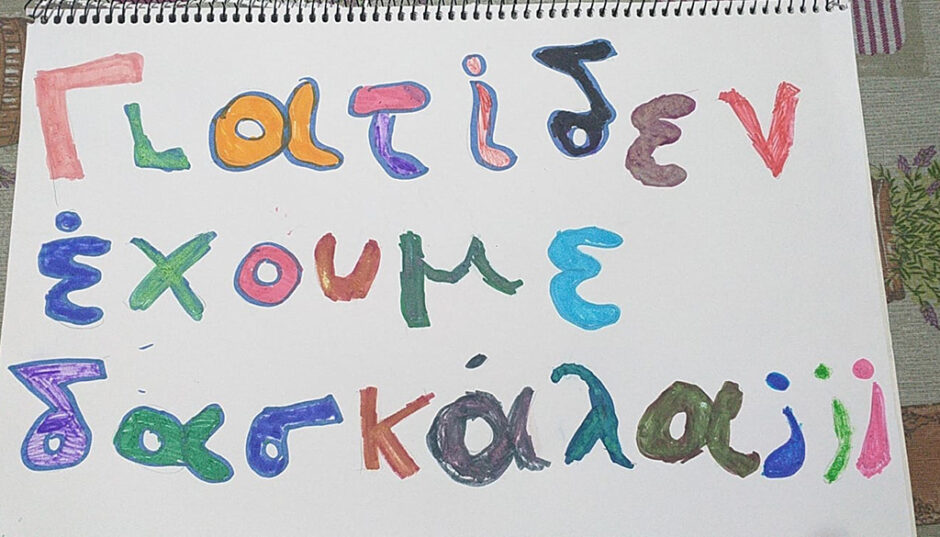 Γιατί δεν
έχουμε
δάσκάλα;;;